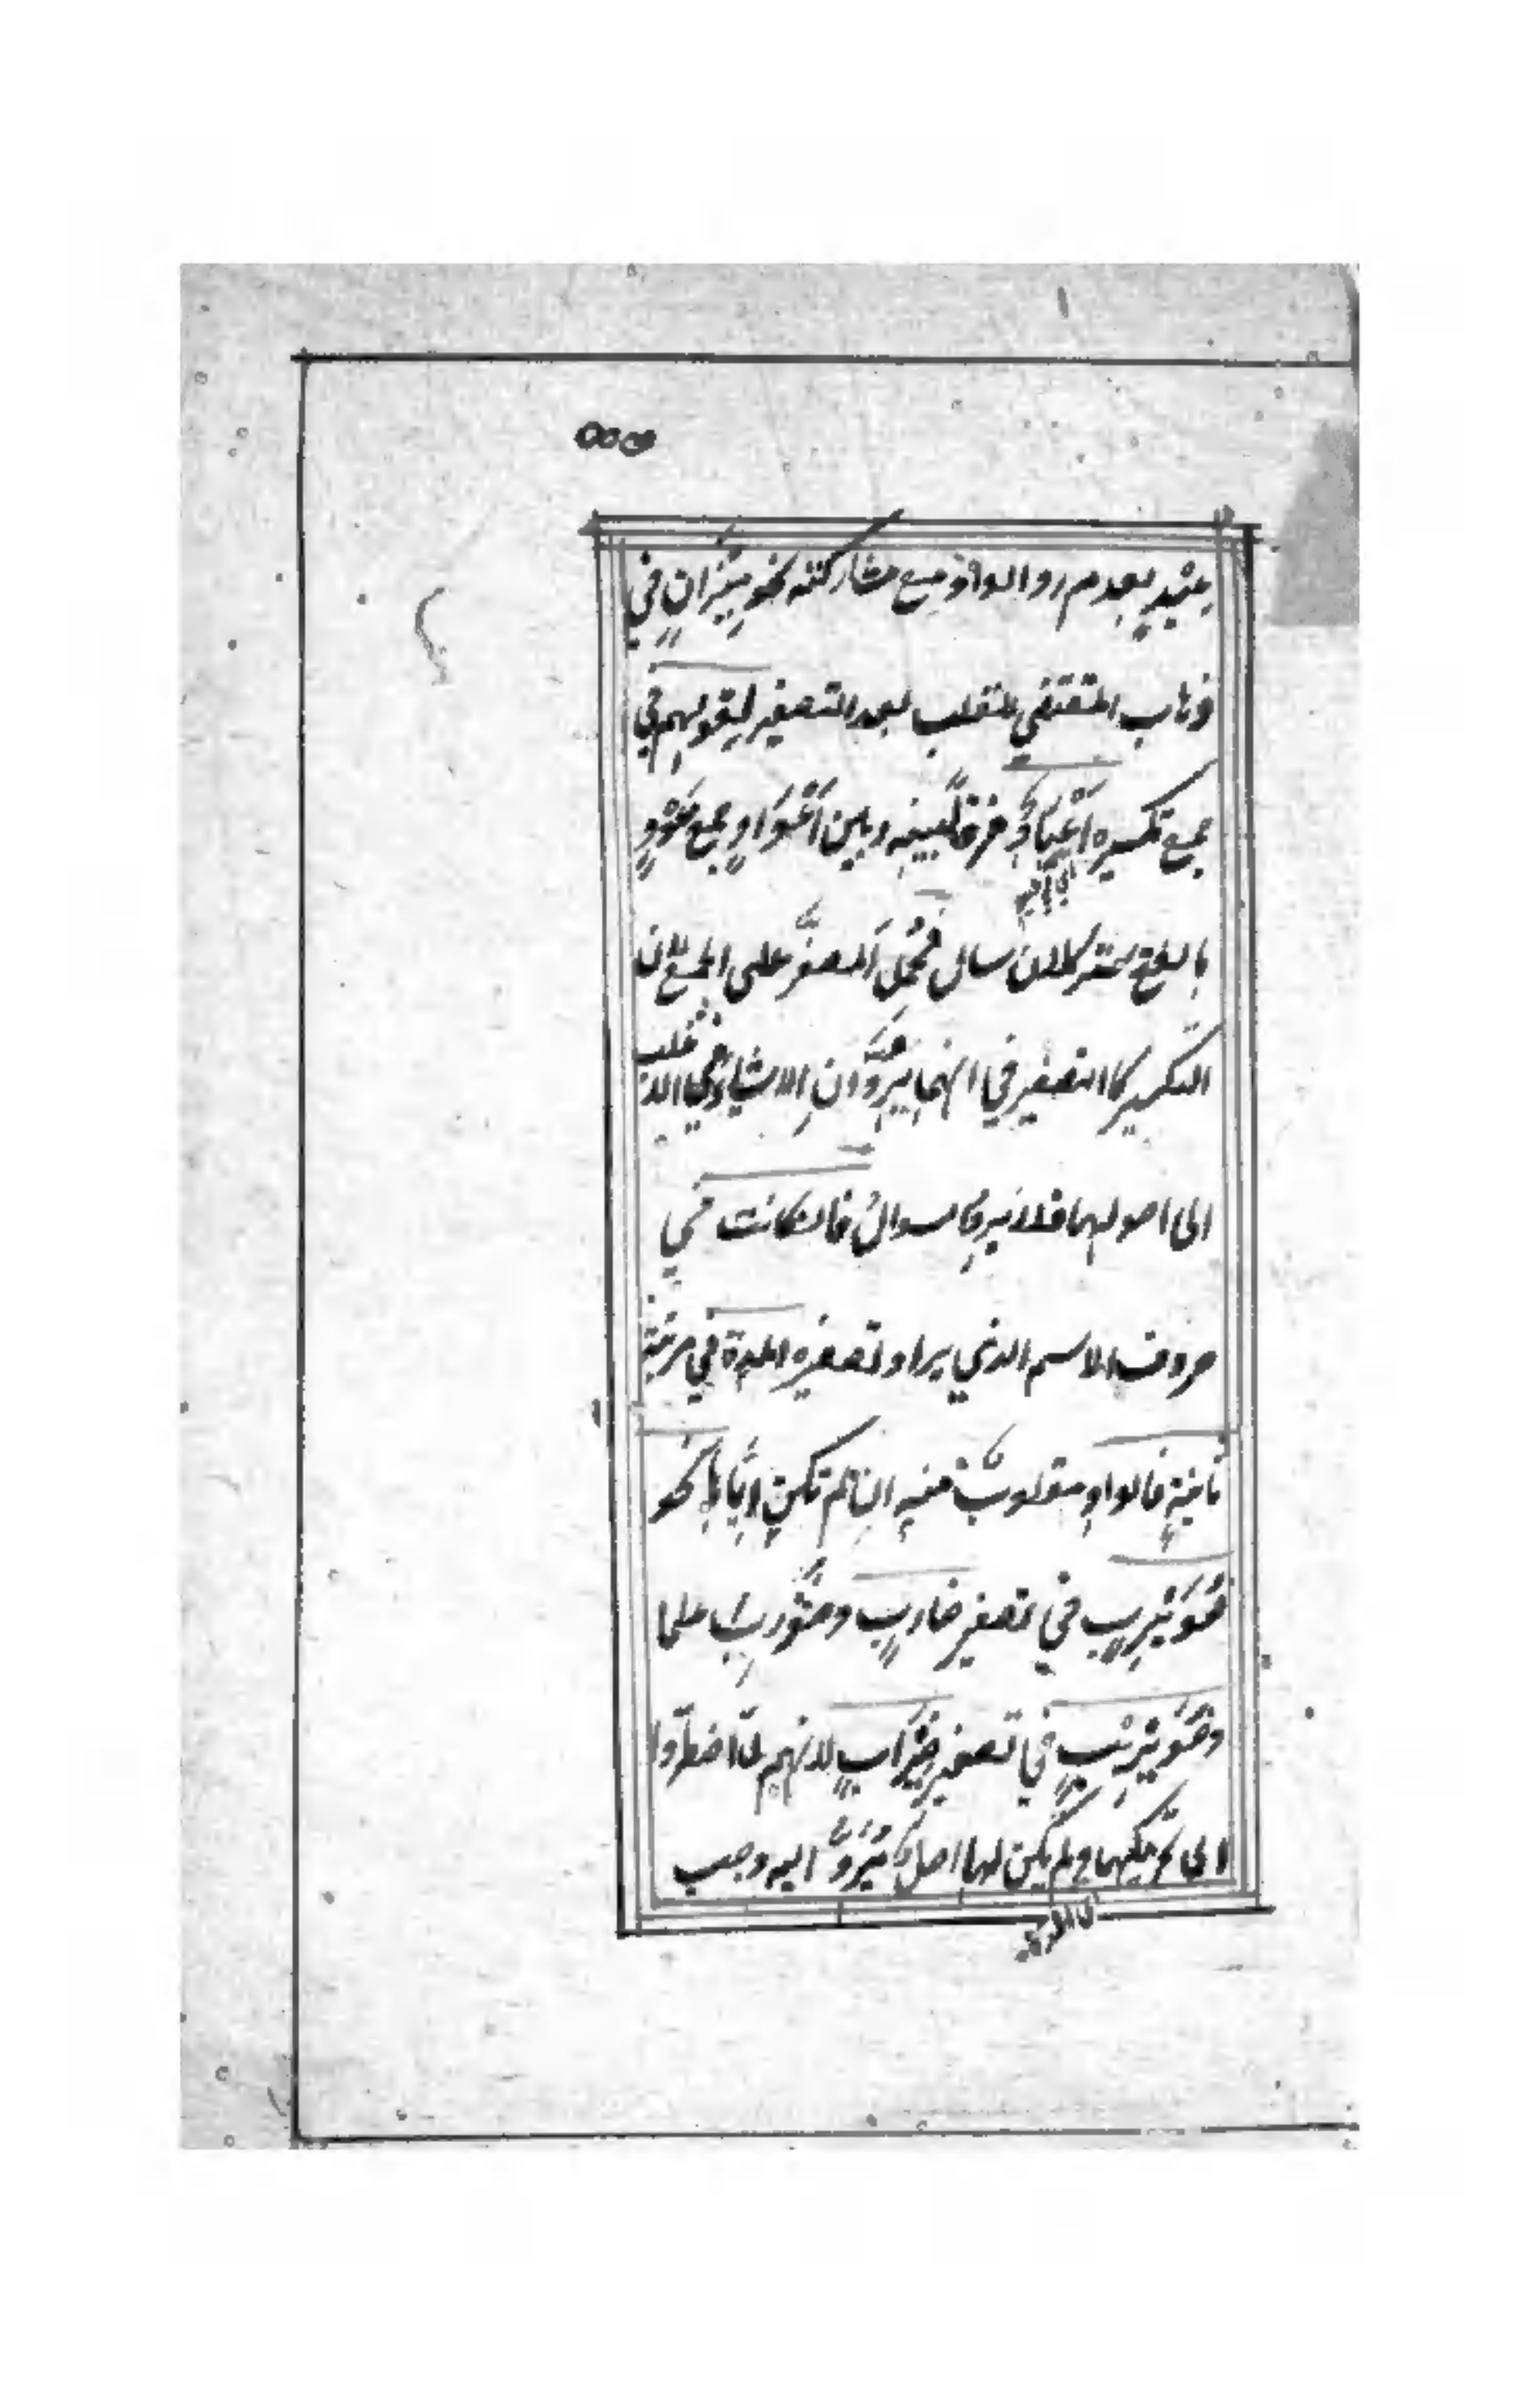 عُيَيْدٍ بعدم رد الواو مع مشاركته نحو مِيْزَانٍ في
ذهاب المقتضي للقلب بعد التصغير لقولهم في
جمع تكسيره اَعْيَادٌ فرقا بينه وبين اَعْوَادٍ جمع عُوْدٍ
فحُمِل المصغَّر على الجمع لان
التكسير كالتصغير في انهما يَرُدَّانِ الاشياء
الى اصولها فلا يرد السوال فان كانت في
حروف الاسم الذي يراد تصغيره المدة في مرتبة
ثانيةٍ فالواو مقلوبة منه ان لم تكن اِيَّاها نحو
ضُوَيْرِبٍ في تصغير ضاربٍ
وضُوَيْرِيْبٍ في تصغير ضِيْرَابٍ لانهم لمّا اضطرّوا
الى تحريكها ولم يكن لها اصل يُرَدُّ اليه وجب